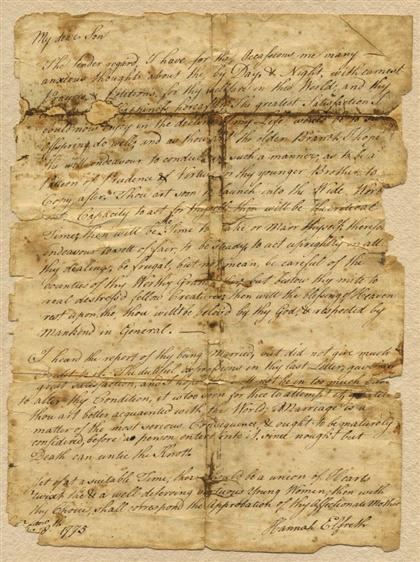 My dear Son
The tender regard, I have for thee Occassions me many
anxious thoughts about thee by Day, & Night, with earnest
for thy welfare in this World, and thy
happiness hereafter. The greatest Satisfaction I
could now enjoy in the decline of my Life would be to
Offspring do well, and as thou art the older Branch I hope
thou will endeavour to conduct in such a manner, as to be a
Pattern of Prudence & Virtue to thy younger Brother to
Copy after. Thou art soon to launch into the Wide World
Capacity to act for thyself then will be the critical
Time, then will be the Time to Make or Marr thyself, therefore
endeavour to sett off fair, to be steady, to act uprightly in all
thy dealings, be frugal, but not mean, be careful of the
bounties of thy Worthy but bestow thy mite to
real distressed fellow Creatures, then will the Blessing of Heaven
rest upon thee thou will be belov'd by thy God, & respected by
Mankind in General. —
I heard the report of thy being Married, but did not give much
Credit to it. The dutiful expressions in thy last Letter, gave me
great Satisfaction, and I hope thou will not be in too much haste
to alter thy Condition, it is too soon for thee to attempt it, untill
thou art better acquainted with the World; Marriage is a
matter of the most serious Consequence & ought to be maturely
considered, before a person enters into it, since nought but
Death can untie the Knoth
yet if at a suitable Time, there should be a union of Hearts
twixt thee & a well deserving virtuous Young Women, then with
thy Choice, shall correspond the Approbation of thy Affectionate Mother
Hannah Elfreth
18th 1773